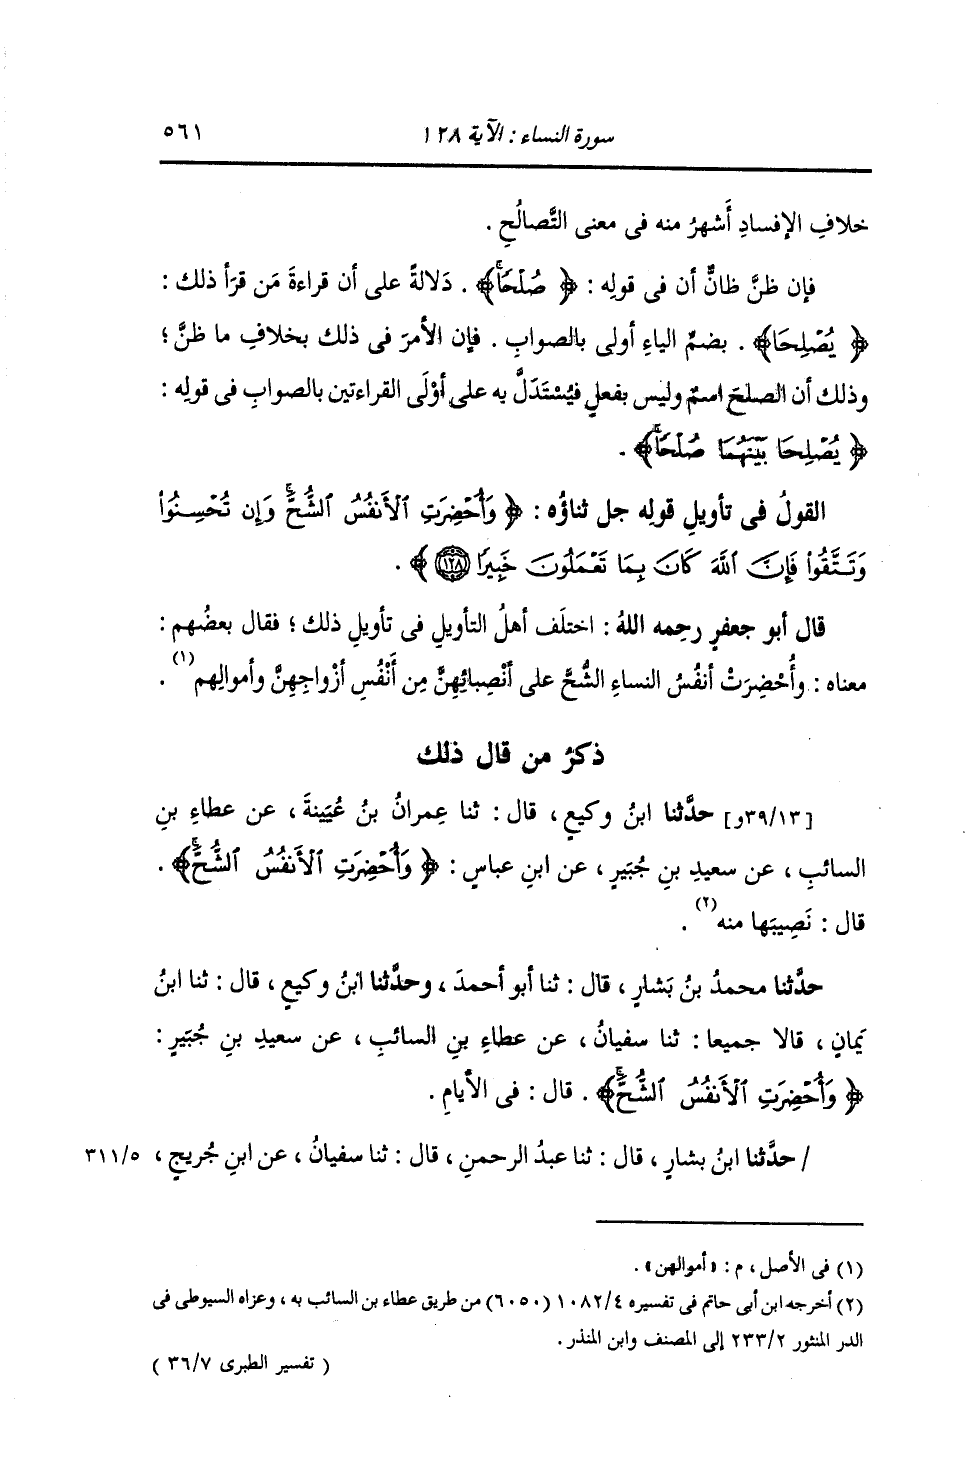 سورة النساء : الآية ١٢٨
٥٦١
خلافِ الإفسادِ أَشهرُ منه فى معنى التَّصالُحِ .
فإن ظنَّ ظانٌّ أن فى قولِه : ﴿ صُلْحًا ﴾ . دَلالةً على أن قراءةَ مَن قرَأ ذلك :
﴿ يُصْلِحَا ﴾ . بضمِّ الياءِ أولى بالصوابِ . فإن الأمرَ فى ذلك بخلافِ ما ظنَّ ؛
وذلك أن الصلحَ اسمٌ وليس بفعلٍ فيُسْتَدَلَّ به على أوْلَى القراءتين بالصوابِ فى قولِه :
﴿ يُصْلِحَا بَيْنَهُمَا صُلْحًا ﴾ .
القولُ فى تأويلِ قولِه جل ثناؤُه : ﴿ وَأُحْضِرَتِ ٱلْأَنفُسُ ٱلشُّحَّ وَإِن تُحْسِنُوا۟
وَتَتَّقُوا۟ فَإِنَّ ٱللَّهَ كَانَ بِمَا تَعْمَلُونَ خَبِيرًا ۝١٢٨ ﴾ .
قال أبو جعفرٍ رحِمه اللهُ : اختلَف أهلُ التأويلِ فى تأويلِ ذلك ؛ فقال بعضُهم :
معناه : وأُحْضِرَتْ أنفُسُ النساءِ الشُّحَّ على أَنْصِبائِهنَّ مِن أَنْفُسِ أزْواجِهنَّ وأموالِهم (١) .
ذكرُ من قال ذلك
[٣٩/١٣و] حدَّثنا ابنُ وكيعٍ ، قال : ثنا عِمرانُ بنُ عُيَينةَ ، عن عطاءِ بنِ
السائبِ ، عن سعيدِ بنِ جُبَيرٍ ، عن ابنِ عباسٍ : ﴿ وَأُحْضِرَتِ ٱلْأَنفُسُ ٱلشُّحَّ ﴾ .
قال : نَصِيبَها منه (٢) .
حدَّثنا محمدُ بنُ بَشارٍ ، قال : ثنا أبو أحمدَ ، وحدَّثنا ابنُ وكيعٍ ، قال : ثنا ابنُ
يَمانٍ ، قالا جميعا : ثنا سفيانُ ، عن عطاءِ بنِ السائبِ ، عن سعيدِ بنِ جُبَيرٍ :
﴿ وَأُحْضِرَتِ ٱلْأَنفُسُ ٱلشُّحَّ ﴾ . قال : فى الأيامِ .
/ حدَّثنا ابنُ بشارٍ ، قال : ثنا عبدُ الرحمنِ ، قال : ثنا سفيانُ ، عن ابنِ جُريجٍ ، ٣١١/٥
(١) فى الأصل ، م : « أموالهن » .
(٢) أخرجه ابن أبى حاتم فى تفسيره ١٠٨٢/٤ (٦٠٥٠) من طريق عطاء بن السائب به ، وعزاه السيوطى فى
الدر المنثور ٢٣٣/٢ إلى المصنف وابن المنذر .
( تفسير الطبرى ٣٦/٧ )